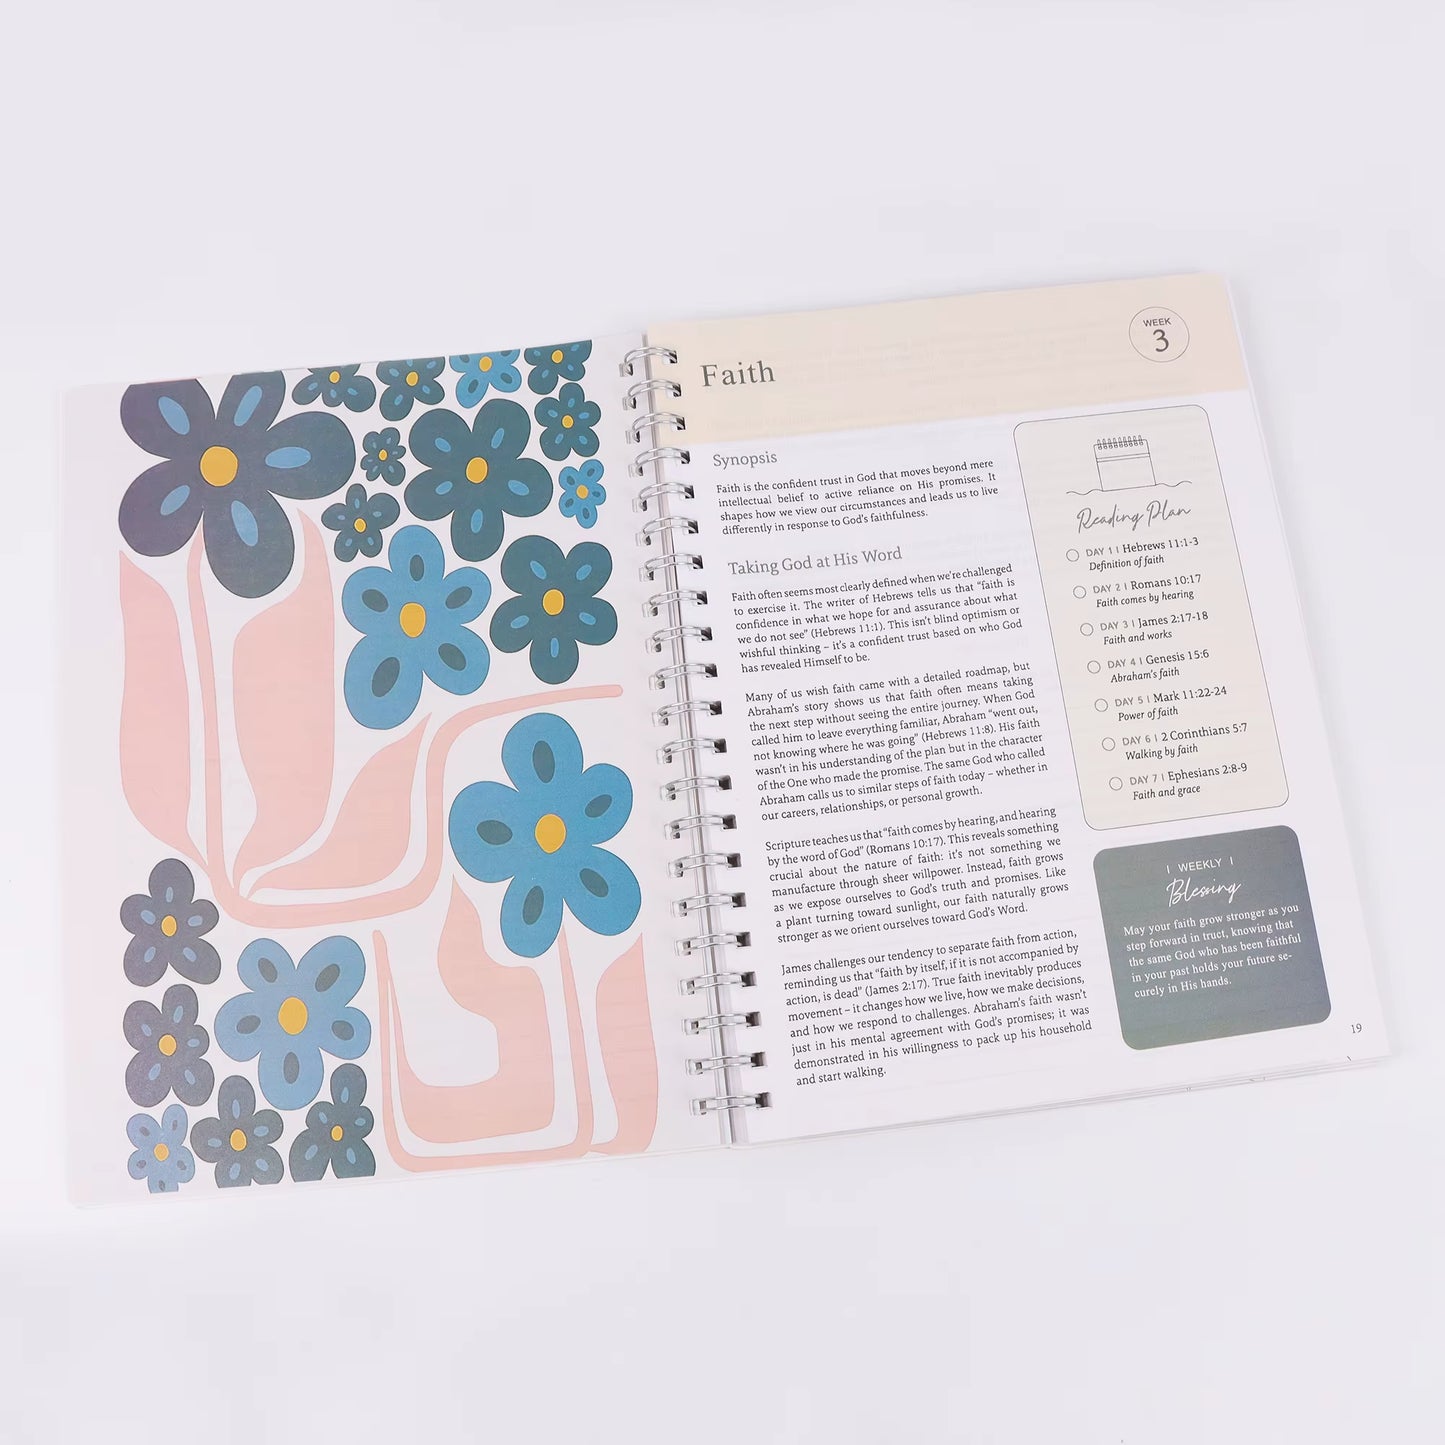 Faith
WEEK
3
Synopsis
Faith is the confident trust in God that moves beyond mere
intellectual belief to active reliance on His promises. It
shapes how we view our circumstances and leads us to live
differently in response to God's faithfulness.
Taking God at His Word
Faith often seems most clearly defined when we're challenged
to exercise it. The writer of Hebrews tells us that "faith is
confidence in what we hope for and assurance about what
we do not see" (Hebrews 11:1). This isn't blind optimism or
wishful thinking – it's a confident trust based on who God
has revealed Himself to be.
Many of us wish faith came with a detailed roadmap, but
Abraham's story shows us that faith often means taking
the next step without seeing the entire journey. When God
called him to leave everything familiar, Abraham "went out,
not knowing where he was going" (Hebrews 11:8). His faith
wasn't in his understanding of the plan but in the character
of the One who made the promise. The same God who called
Abraham calls us to similar steps of faith today – whether in
our careers, relationships, or personal growth.
Scripture teaches us that "faith comes by hearing, and hearing
by the word of God" (Romans 10:17). This reveals something
crucial about the nature of faith: it's not something we
manufacture through sheer willpower. Instead, faith grows
as we expose ourselves to God's truth and promises. Like
a plant turning toward sunlight, our faith naturally grows
stronger as we orient ourselves toward God's Word.
James challenges our tendency to separate faith from action,
reminding us that "faith by itself, if it is not accompanied by
action, is dead" (James 2:17). True faith inevitably produces
movement – it changes how we live, how we make decisions,
and how we respond to challenges. Abraham's faith wasn't
just in his mental agreement with God's promises; it was
demonstrated in his willingness to pack up his household
and start walking.
Reading Plan
DAY 1 | Hebrews 11:1-3
Definition of faith
DAY 2 | Romans 10:17
Faith comes by hearing
DAY 3 | James 2:17-18
Faith and works
DAY 4 | Genesis 15:6
Abraham's faith
DAY 5 | Mark 11:22-24
Power of faith
DAY 6 | 2 Corinthians 5:7
Walking by faith
DAY 7 | Ephesians 2:8-9
Faith and grace
| WEEKLY |
Blessing
May your faith grow stronger as you
step forward in truct, knowing that
the same God who has been faithful
in your past holds your future se-
curely in His hands.
19